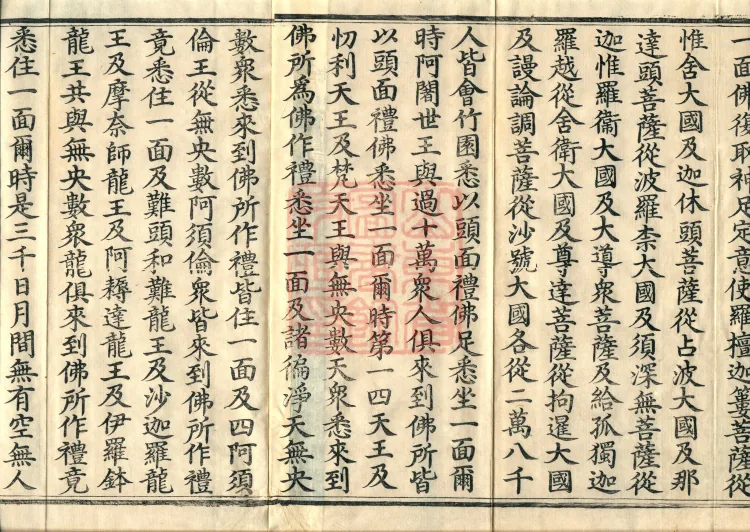 一面佛復取神足定意使羅檀迦蔞菩薩從
惟舍大國及迦休頭菩薩從占波大國及那
達頭菩薩從波羅柰大國及須深無菩薩從
迦惟羅衞大國及大導衆菩薩及給孤獨迦
羅越從舍衞大國及尊達菩薩從拘暹大國
及謾論調菩薩從沙號大國各從二萬八千
人皆會竹園悉以頭面禮佛足悉坐一面爾
時阿闍世王與過十萬衆人俱來到佛所皆
以頭面禮佛悉坐一面爾時第一四天王及
忉利天王及梵天王與無央數天衆悉來到
佛所爲佛作禮悉坐一面及諸徧淨天無央
數衆悉來到佛所作禮皆住一面及四阿須
倫王從無央數阿須倫衆皆來到佛所作禮
竟悉住一面及難頭和難龍王及沙迦羅龍
王及摩奈師龍王及阿耨達龍王及伊羅鉢
龍王共與無央數衆龍俱來到佛所作禮竟
悉住一面爾時是三千日月間無有空無人